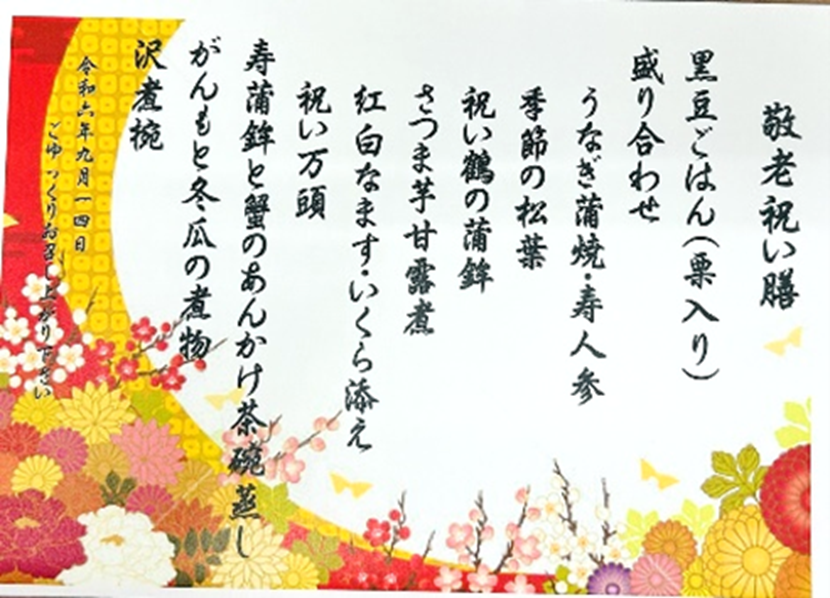 敬老祝い膳
黒豆ごはん(栗入り)
盛り合わせ
うなぎ蒲焼・寿人参
季節の松葉
祝い鶴の蒲鉾
さつま芋甘露煮
紅白なます・いくら添え
祝い万頭
寿蒲鉾と蟹のあんかけ茶碗蒸し
がんもと冬瓜の煮物
沢煮椀
令和六年九月一四日
ごゆっくりお召し上がり下さい